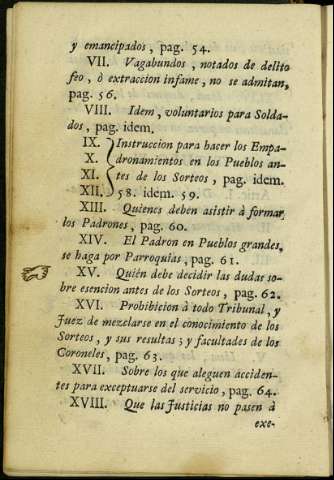 y emancipados, pag. 54.
VII. Vagabundos, notados de delito
feo, ò extraccion infame, no se admitan,
pag. 56.
VIII. Idem, voluntarios para Solda-
dos, pag. idem.
IX. Instruccion para hacer los Empa-
X. dronamientos en los Pueblos an-
XI. tes de los Sorteos, pag. idem.
XII. 58. idem. 59.
XIII. Quienes deben asistir à formar
los Padrones, pag. 60.
XIV. El Padron en Pueblos grandes,
se haga por Parroquias, pag. 61.
XV. Quién debe decidir las dudas so-
bre esencion antes de los Sorteos, pag. 62.
XVI. Prohibicion à todo Tribunal, y
Juez de mezclarse en el conocimiento de los
Sorteos, y sus resultas; y facultades de los
Coroneles, pag. 63.
XVII. Sobre los que aleguen acciden-
tes para exceptuarse del servicio, pag. 64.
XVIII. Que las Justicias no pasen à
exe-